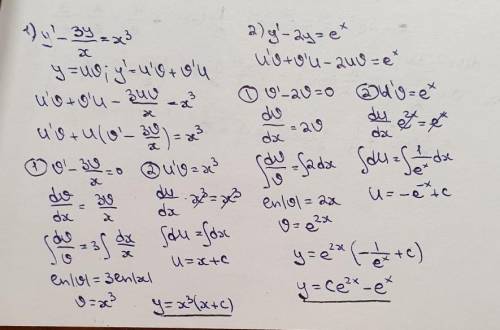 1) y' - 3y/x = x³
y = uv; y' = u'v + v'u
u'v + v'u - 3uv/x = x³
u'v + u(v' - 3v/x) = x³
① v' - 3v/x = 0
dv/dx = 3v/x
∫dv/v = 3∫dx/x
en|v| = 3en|x|
v = x³
② u'v = x³
du/dx · x³ = x³
∫du = ∫dx
u = x + c
y = x³(x+c)
2) y' - 2y = eˣ
u'v + v'u - 2uv = eˣ
① v' - 2v = 0
dv/dx = 2v
∫dv/v = ∫2dx
en|v| = 2x
v = e²ˣ
② u'v = eˣ
du/dx e²ˣ = eˣ
∫du = ∫1/eˣ dx
u = -e⁻ˣ + c
y = e²ˣ(-1/eˣ + c)
y = ce²ˣ - eˣ